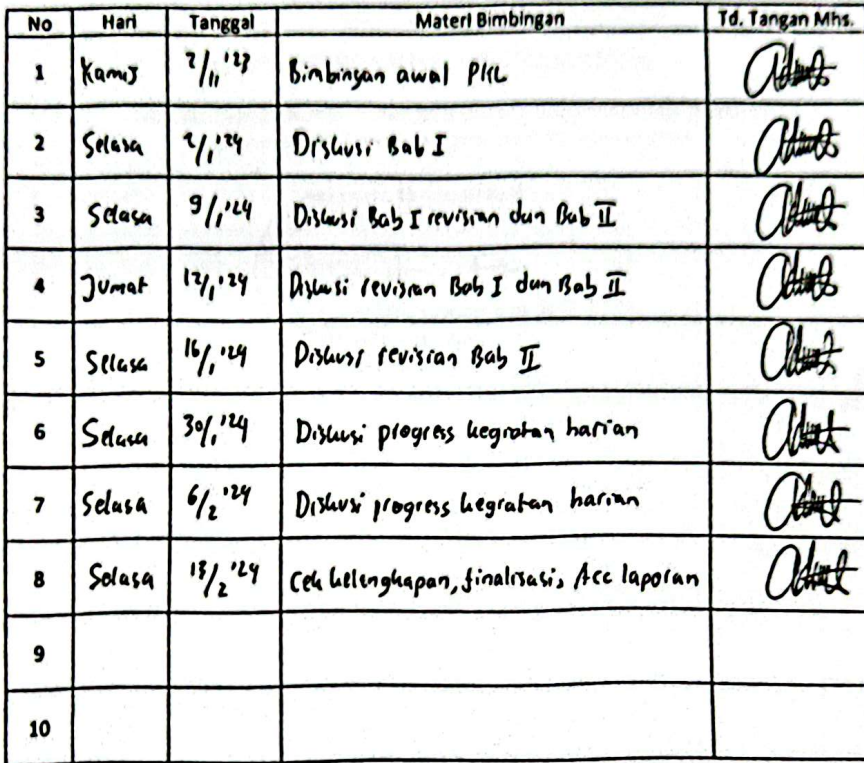 No Hari Tanggal Materi Bimbingan Td. Tangan Mhs.
1 Kamis 2/11 '23 Bimbingan awal PKL
2 Selasa 2/1 '24 Diskusi Bab I
3 Selasa 9/1 '24 Diskusi Bab I revisian dan Bab II
4 Jumat 12/1 '24 Diskusi revisian Bab I dan Bab II
5 Selasa 16/1 '24 Diskusi revisian Bab II
6 Selasa 30/1 '24 Diskusi progress kegiatan harian
7 Selasa 6/2 '24 Diskusi progress kegiatan harian
8 Selasa 13/2 '24 Cek kelengkapan, finalisasi, Acc laporan
9
10